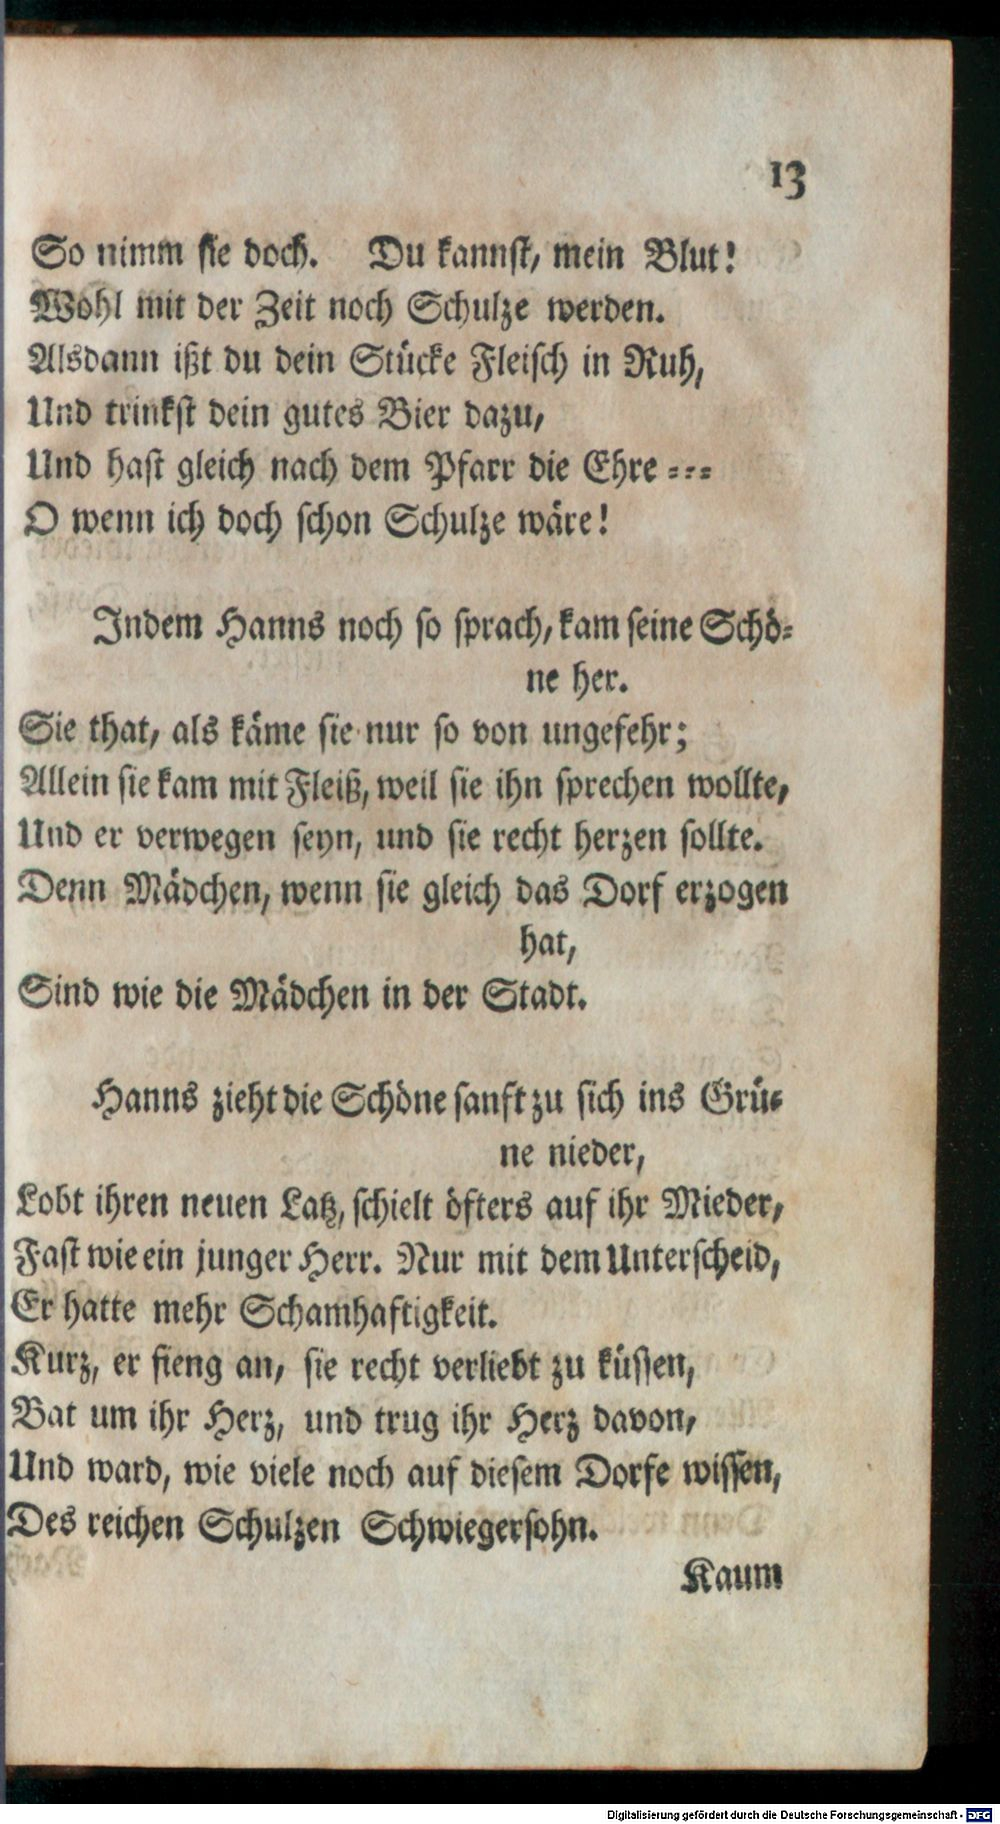 13
So nimm sie doch. Du kannst, mein Blut!
Wohl mit der Zeit noch Schulze werden.
Alsdann ißt du dein Stücke Fleisch in Ruh,
Und trinkst dein gutes Bier dazu,
Und hast gleich nach dem Pfarr die Ehre ---
O wenn ich doch schon Schulze wäre!
Indem Hanns noch so sprach, kam seine Schö-
ne her.
Sie that, als käme sie nur so von ungefehr;
Allein sie kam mit Fleiß, weil sie ihn sprechen wollte,
Und er verwegen seyn, und sie recht herzen sollte.
Denn Mädchen, wenn sie gleich das Dorf erzogen
hat,
Sind wie die Mädchen in der Stadt.
Hanns zieht die Schöne sanft zu sich ins Grü-
ne nieder,
Lobt ihren neuen Latz, schielt öfters auf ihr Mieder,
Fast wie ein junger Herr. Nur mit dem Unterscheid,
Er hatte mehr Schamhaftigkeit.
Kurz, er fieng an, sie recht verliebt zu küssen,
Bat um ihr Herz, und trug ihr Herz davon,
Und ward, wie viele noch auf diesem Dorfe wissen,
Des reichen Schulzen Schwiegersohn.
Kaum
Digitalisierung gefördert durch die Deutsche Forschungsgemeinschaft - DFG